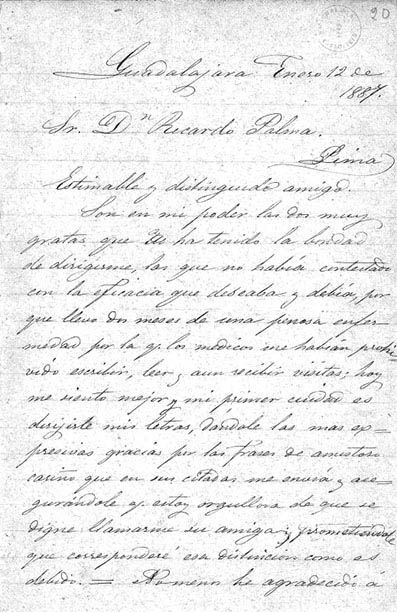 20
Guadalajara Enero 12 de
1887.
Sr. Dn Ricardo Palma.
Lima
Estimable y distinguido amigo.
Son en mi poder las dos muy
gratas que Ud ha tenido la bondad
de dirigirme, las que no había contestado
con la eficacia que deseaba y debia, por
que llevo dos meses de una penosa enfer
medad por la q. los medicos me habían prohi
vido escribir, leer y aun recibir visitas; hoy
me siento mejor y mi primer cuidad es
dirijirle mis letras, dándole las mas ex=
presivas gracias por las frases de amistoso
cariño que en sus citadas me envía y ase=
gurándole q. estoy orgullosa de que se
digne llamarme su amiga; y prometiendole
que corresponderé esa distinción como es
debido. = No menos he agradecido á